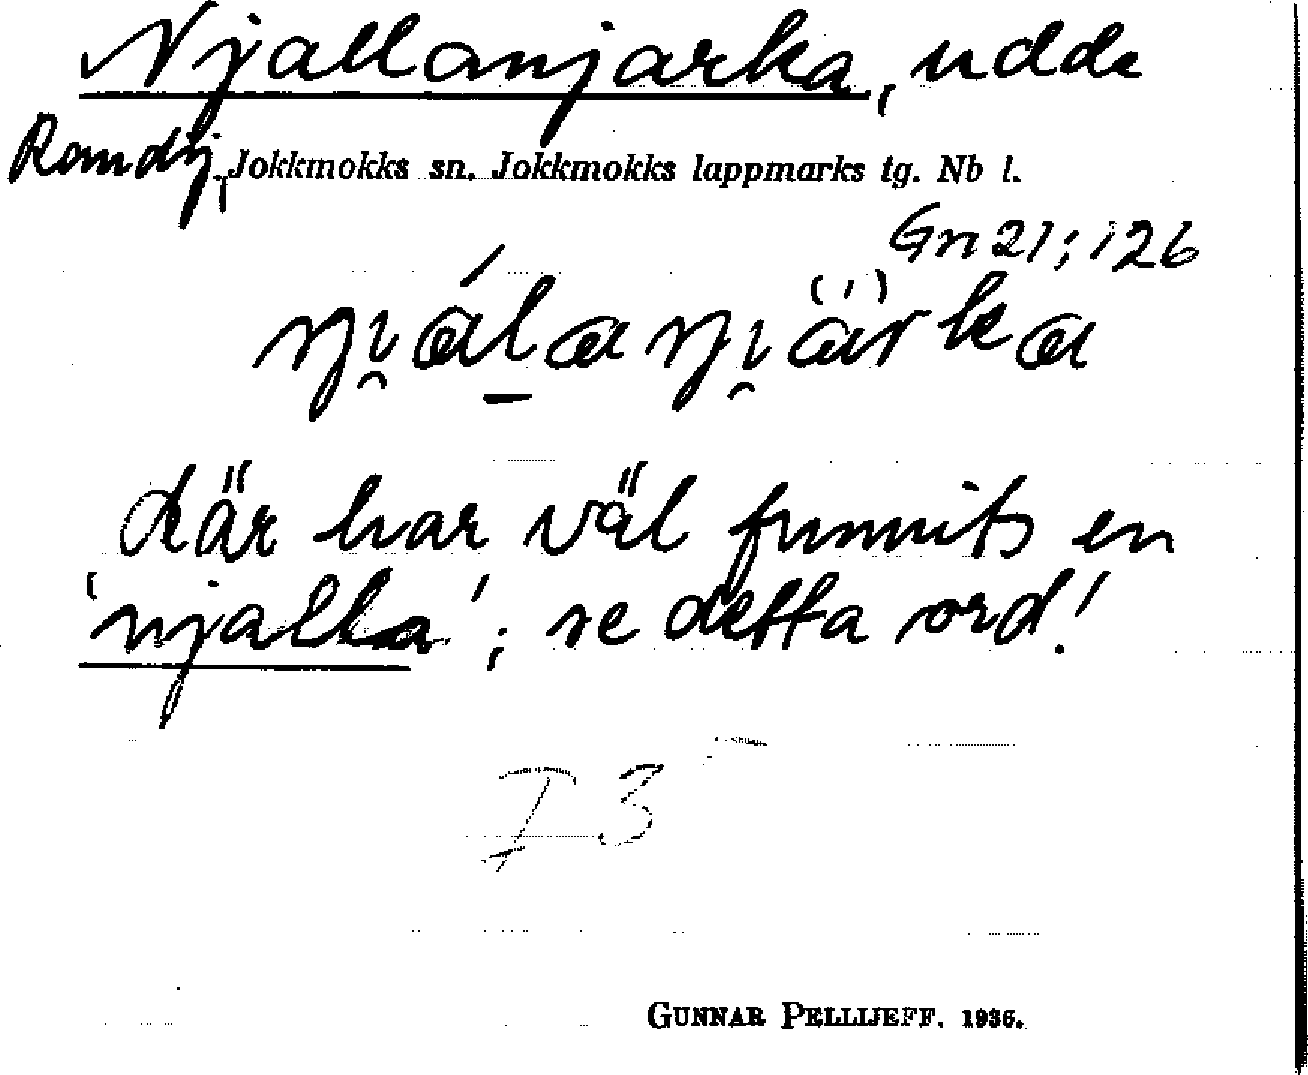 Njallanjarka, udde
Randij, Jokkmokks sn. Jokkmokks lappmarks tg. Nb l.
Gn 21; 126
där har väl funnits en
'njalla'; se detta ord!
I 3
GUNNAR PELLIJEFF. 1936.